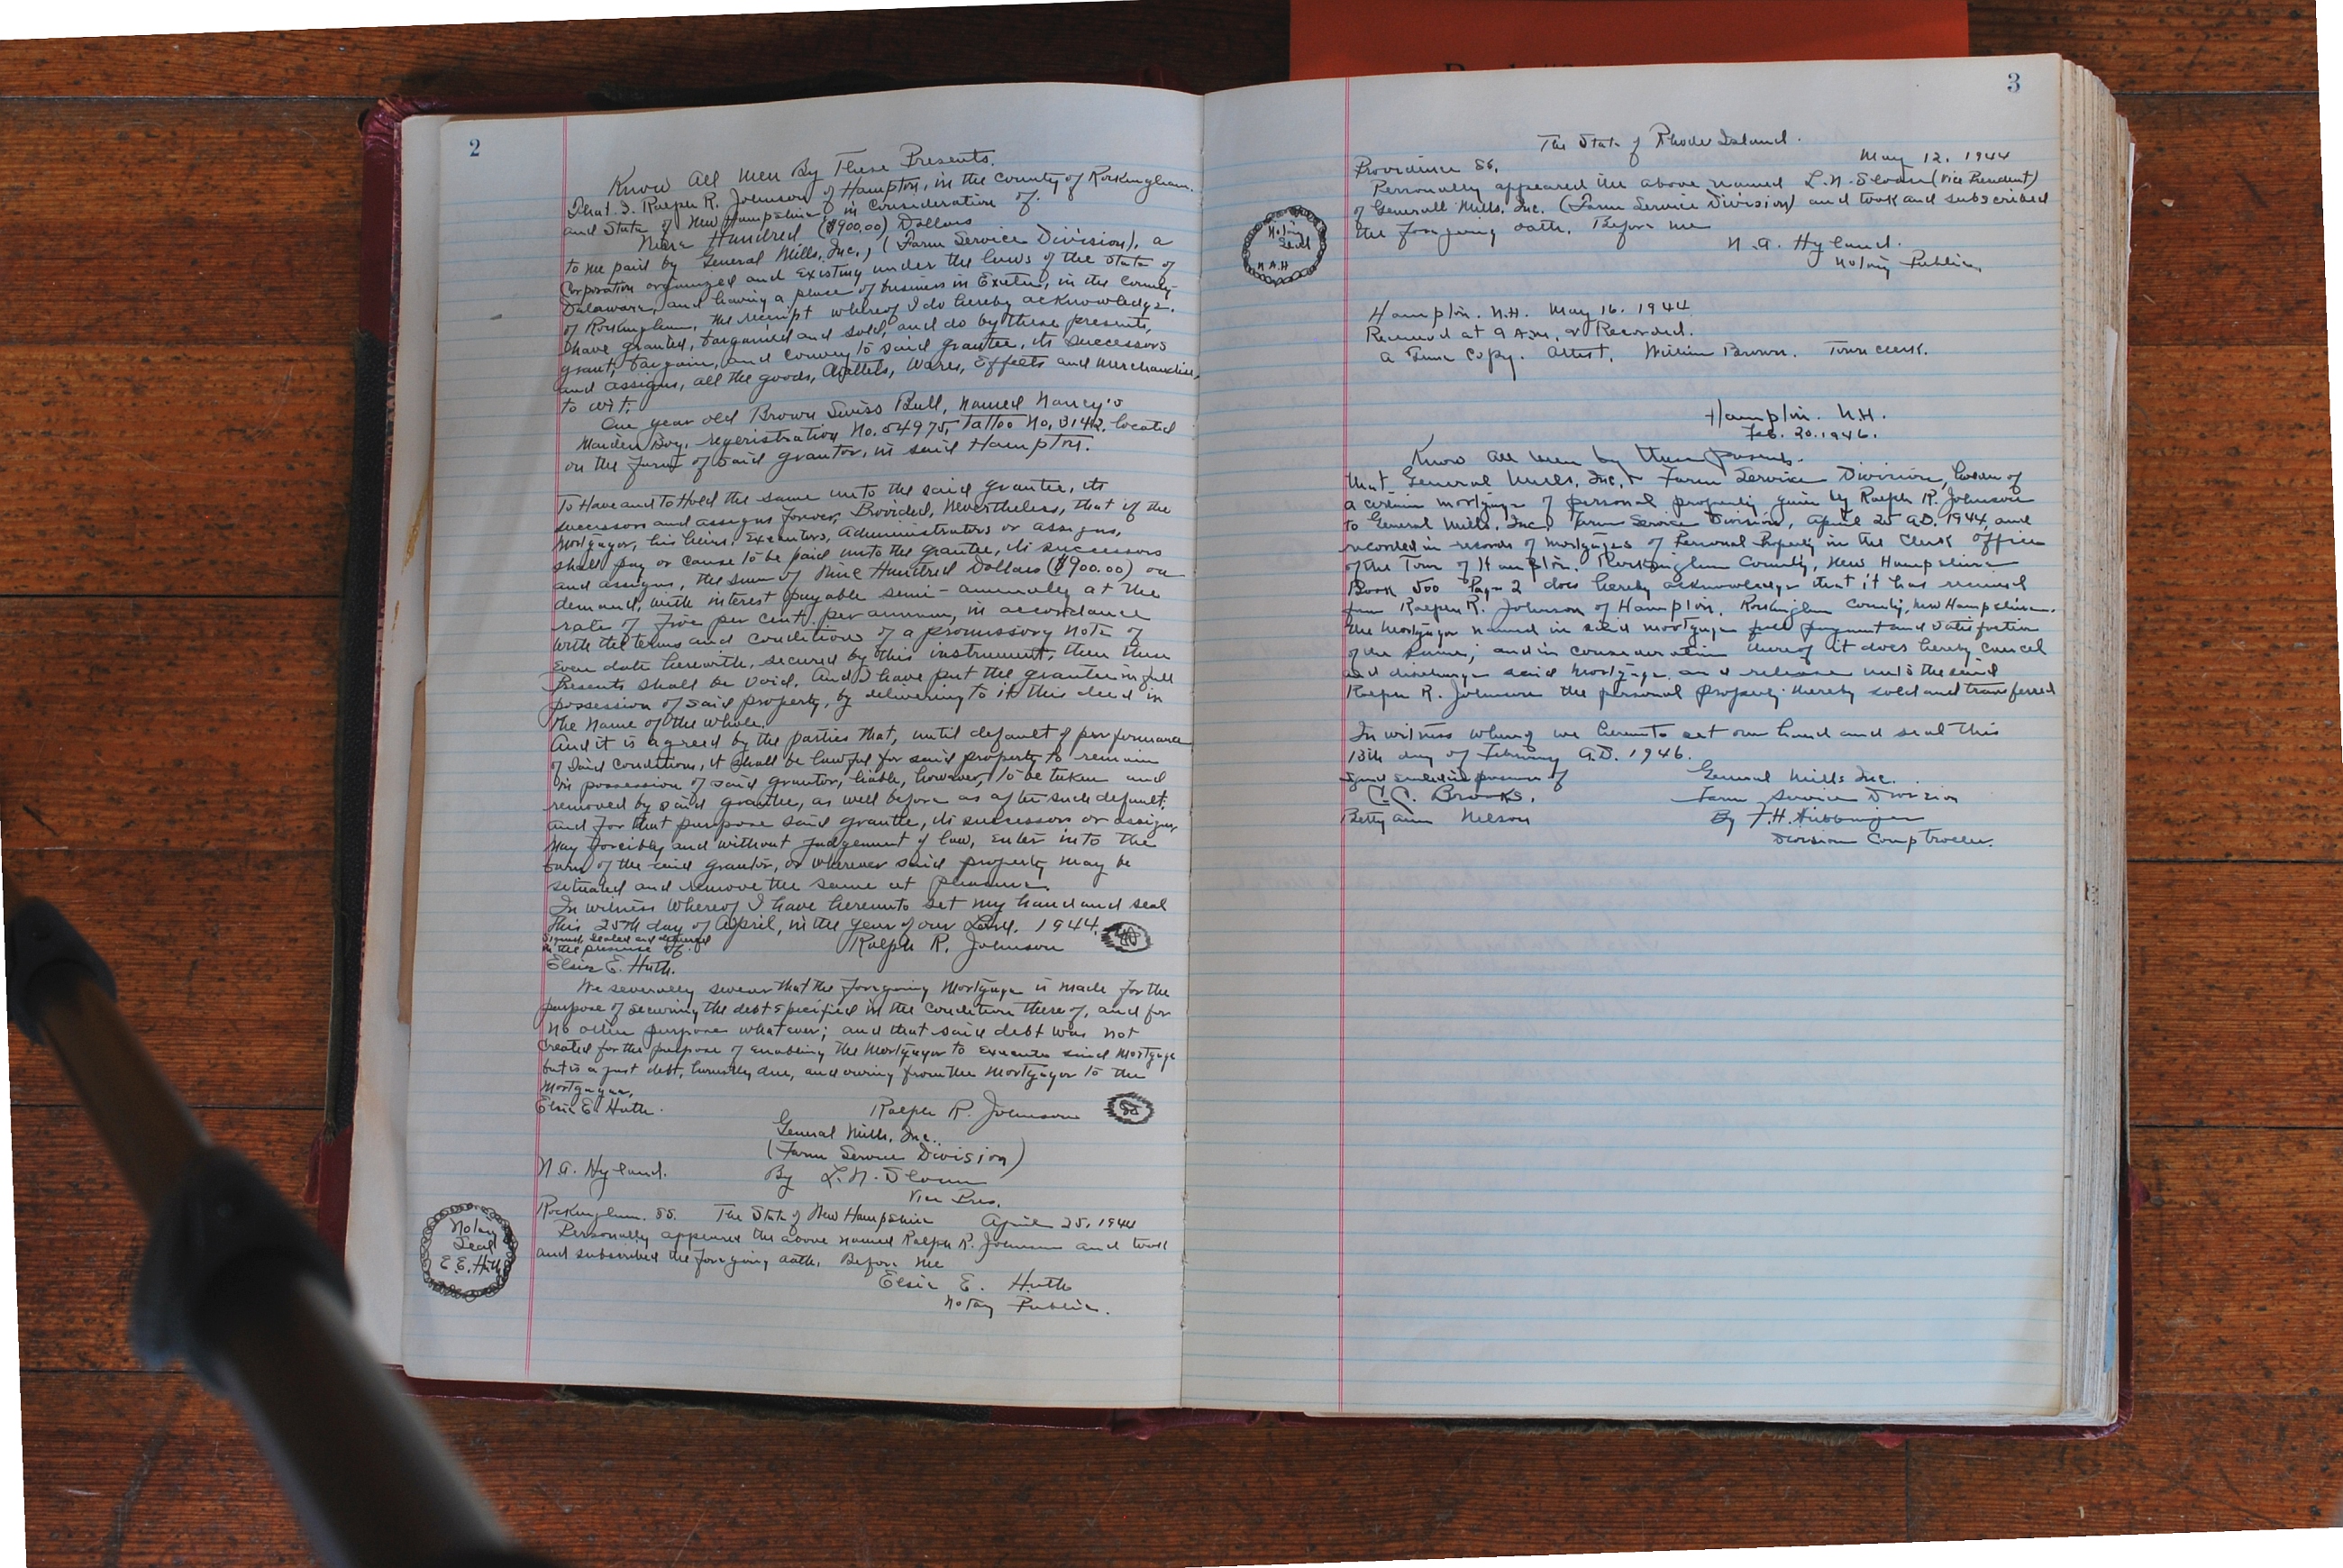 2
Know All Men By These Presents.
That I. Ralph R. Johnson of Hampton, in the County of Rockingham.
and State of New Hampshire in Consideration of.
Nine Hundred ($900.00) Dollars
to me paid by General Mills, Inc.,) (Farm Service Division), a
Corporation organized and existing under the laws of the State of
Delaware, and having a place of business in Exeter, in the County
of Rockingham, the receipt whereof I do hereby acknowledge.
have granted, bargained and sold, and do by these presents,
grant, bargain, and convey to said grantee, its successors
and assigns, all the goods, Chattels, Wares, Effects and Merchandise,
to wit:
One year old Brown Swiss Bull, named Nancy's
Maiden Boy, regeristration No. 54975, Tattoo No. 3142, located
on the farm of said grantor, in said Hampton.
To Have and to Hold the same unto the said grantee, its
successors and assigns forever, Provided, Nevertheless, that if the
Mortgagor, his heirs, Executors, Administrators or assigns,
shall pay or cause to be paid unto the grantee, its successors
and assigns, the sum of Nine Hundred Dollars ($900.00) on
demand, with interest payable semi-annually at the
rate of five per cent. per annum, in accordance
with the terms and conditions of a promissory note of
Even date herewith, secured by this instrument, then these
Presents shall be void. And I have put the grantee in full
possession of said property, by delivering to it this deed in
the name of the whole.
And it is agreed by the parties that, until default of performance
of said conditions, it shall be lawful for said property to remain
in possession of said grantor, liable, however, to be taken and
removed by said grantee, as well before as after such default.
and for that purpose said grantee, its successors or assigns
may forcibly and without judgement of law, enter into the
barn of the said grantor, or wherever said property may be
situated and remove the same at pleasure.
In witness Whereof I have hereunto set my hand and seal
this 25th day of April, in the year of our Lord. 1944.
Signed, sealed and delivered
in the presence of.
Ralph R. Johnson
Elsie E. Huth.
We severally swear that the foregoing Mortgage is made for the
purpose of securing the debt specified in the condition thereof, and for
no other purpose whatever; and that said debt was not
created for the purpose of enabling the Mortgagor to execute said Mortgage
but is a just debt, honestly due, and owing from the Mortgagor to the
Mortgagee.
Elsie E. Huth. Ralph R. Johnson
General Mills, Inc.
(Farm Service Division)
N.A. Hyland. By L.N. Sloan
Vice Pres.
Rockingham. SS. The State of New Hampshire April 25, 1944
Personally appeared the above named Ralph R. Johnson and took
and subscribed the foregoing oath. Before me
Elsie E. Huth
Notary Public.
Notary
Seal
E.E. Huth
3
The State of Rhode Island.
Providence SS. May 12. 1944
Personally appeared the above named L.N. Sloan (Vice President)
of Generall Mills. Inc. (Farm Service Division) and took and subscribed
the foregoing oath. Before me
N.A. Hyland.
Notary Public.
Notary
Seal
N.A.H
Hampton. N.H. May 16. 1944
Received at 9 A.M. & Recorded.
A True Copy. Attest, William Brown. Town Clerk.
Hampton. N.H.
Feb. 20. 1946.
Know all men by these presents.
that General Mills, Inc. Farm Service Division, holder of
a certain mortgage of personal property given by Ralph R. Johnson
to General Mills, Inc. Farm Service Division, April 25 A.D. 1944, and
recorded in records of mortgages of Personal Property in the Clerk Office
of the Town of Hampton. Rockingham County, New Hampshire
Book 500 Page 2 does hereby acknowledge that it has received
from Ralph R. Johnson of Hampton, Rockingham County, New Hampshire.
the Mortgagor named in said mortgage full payment and satisfaction
of the same; and in consideration thereof it does hereby cancel
and discharge said Mortgage, and release unto the said
Ralph R. Johnson the personal property thereby sold and transferred
In witness whereof we hereunto set our hand and seal this
13th day of February A.D. 1946.
Signed sealed in presence of General Mills Inc.
C.C. Brooks. Farm Service Division
Betty Ann Nelson By F.H.
Division Comptroller.